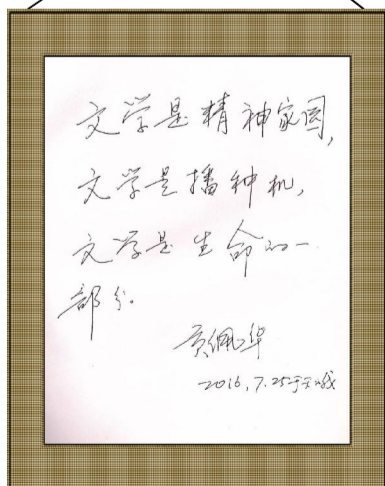 文学是精神家园,
文学是播种机,
文学是生命的一
部分。
黄佩华
2016.7.25于天峨